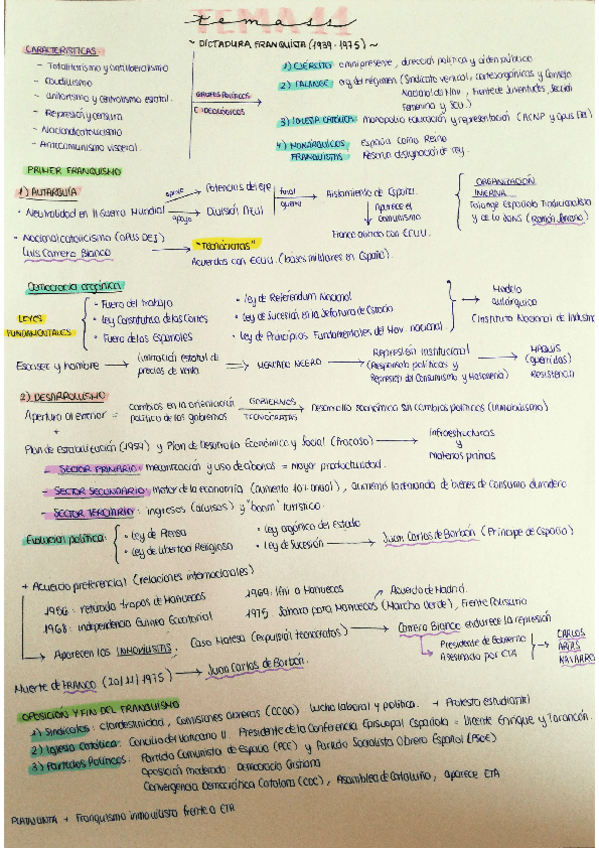 TEMA 11
temass
~ DICTADURA FRANQUISTA (1939-1975) ~
CARACTERÍSTICAS
- Totalitarismo y antiliberalismo
- Caudillismo
- Unitarismo y centralismo estatal.
- Represión y censura
- Nacionalcatolicismo
- Anticomunismo visceral.
GRUPOS POLÍTICOS E IDEOLÓGICOS
1) EJÉRCITO: omnipresente, dirección política y orden público
2) FALANGE: org del régimen (Sindicato vertical, cortes orgánicas y Consejo
Nacional del Mov, Frente de Juventudes, Sección
Femenina y SEU).
3) IGLESIA CATÓLICA: monopolio educación y representación (ACNP y Opus Dei)
4) MONÁRQUICOS FRANQUISTAS
España como Reino
Reserva designación de rey.
PRIMER FRANQUISMO
1) AUTARQUÍA
· Neutralidad en II Guerra Mundial
apoya
Potencias del eje
División Azul
final guerra
Aislamiento de España.
Aparece el comunismo
Franco alianza con EEUU.
ORGANIZACIÓN INTERNA
Falange Española Tradicionalista
y de las JONS (Ramón Serrano)
· Nacionalcatolicismo (OPUS DEI)
Luis Carrero Blanco
"Tecnócratas"
Acuerdos con EEUU. (bases militares en España).
Democracia orgánica
LEYES FUNDAMENTALES
· Fuero del trabajo
· Ley Constitutiva de las Cortes
· Fuero de los Españoles
· Ley de Referéndum Nacional
· Ley de Sucesión en la Jefatura de Estado
· Ley de Principios Fundamentales del Mov. nacional.
Modelo autárquico
(Instituto Nacional de Industria
Escasez y hambre
(limitación estatal de
precios de venta
MERCADO NEGRO
Represión institucional
(Responsab. políticas y
Represión del Comunismo y Masonería)
MAQUIS
(guerrillas)
Resistencia
2) DESARROLLISMO
Apertura al exterior =
cambios en la orientación
política de los gobiernos
GOBIERNOS TECNÓCRATAS
Desarrollo económico sin cambios políticos (INMOVILISMO)
+
Plan de Estabilización (1959) y Plan de Desarrollo Económico y Social (Fracaso)
Infraestructuras
y
Materias primas
- SECTOR PRIMARIO: mecanización y uso de abonos = mayor productividad.
- SECTOR SECUNDARIO: motor de la economía (aumento 10% anual), aumentó la demanda de bienes de consumo duradero
- SECTOR TERCIARIO: ingresos (divisas) y "boom" turístico.
Evolución política:
· Ley de Prensa
· Ley de Libertad Religiosa
· Ley orgánica del Estado
· Ley de Sucesión
Juan Carlos de Borbón (Príncipe de España)
+ Acuerdo preferencial (relaciones internacionales)
1956: retirada tropas de Marruecos
1968: independencia Guinea Ecuatorial
1969: Ifni a Marruecos
1975: Sáhara para Marruecos (Marcha Verde), Frente Polisario
Acuerdo de Madrid.
Aparecen los INMOVILISTAS.
Caso Matesa (expulsión tecnócratas)
Carrero Blanco endurece la represión
Presidente de Gobierno
Asesinado por ETA
CARLOS
ARIAS
NAVARRO
Muerte de FRANCO (20/11/1975)
Juan Carlos de Borbón.
OPOSICIÓN Y FIN DEL FRANQUISMO
1) Sindicatos: clandestinidad, Comisiones obreras (CCOO) lucha laboral y política. + Protesta estudiantil
2) Iglesia Católica: Concilio del Vaticano II. Presidente de la Conferencia Episcopal Española = Vicente Enrique y Tarancón.
3) Partidos Políticos. Partido Comunista de España (PCE) y Partido Socialista Obrero Español (PSOE)
Oposición moderada: Democracia Cristiana
Convergencia Democrática Catalana (CDC), Asamblea de Cataluña, aparece ETA
PLATAJUNTA + Franquismo inmovilista frente a ETA